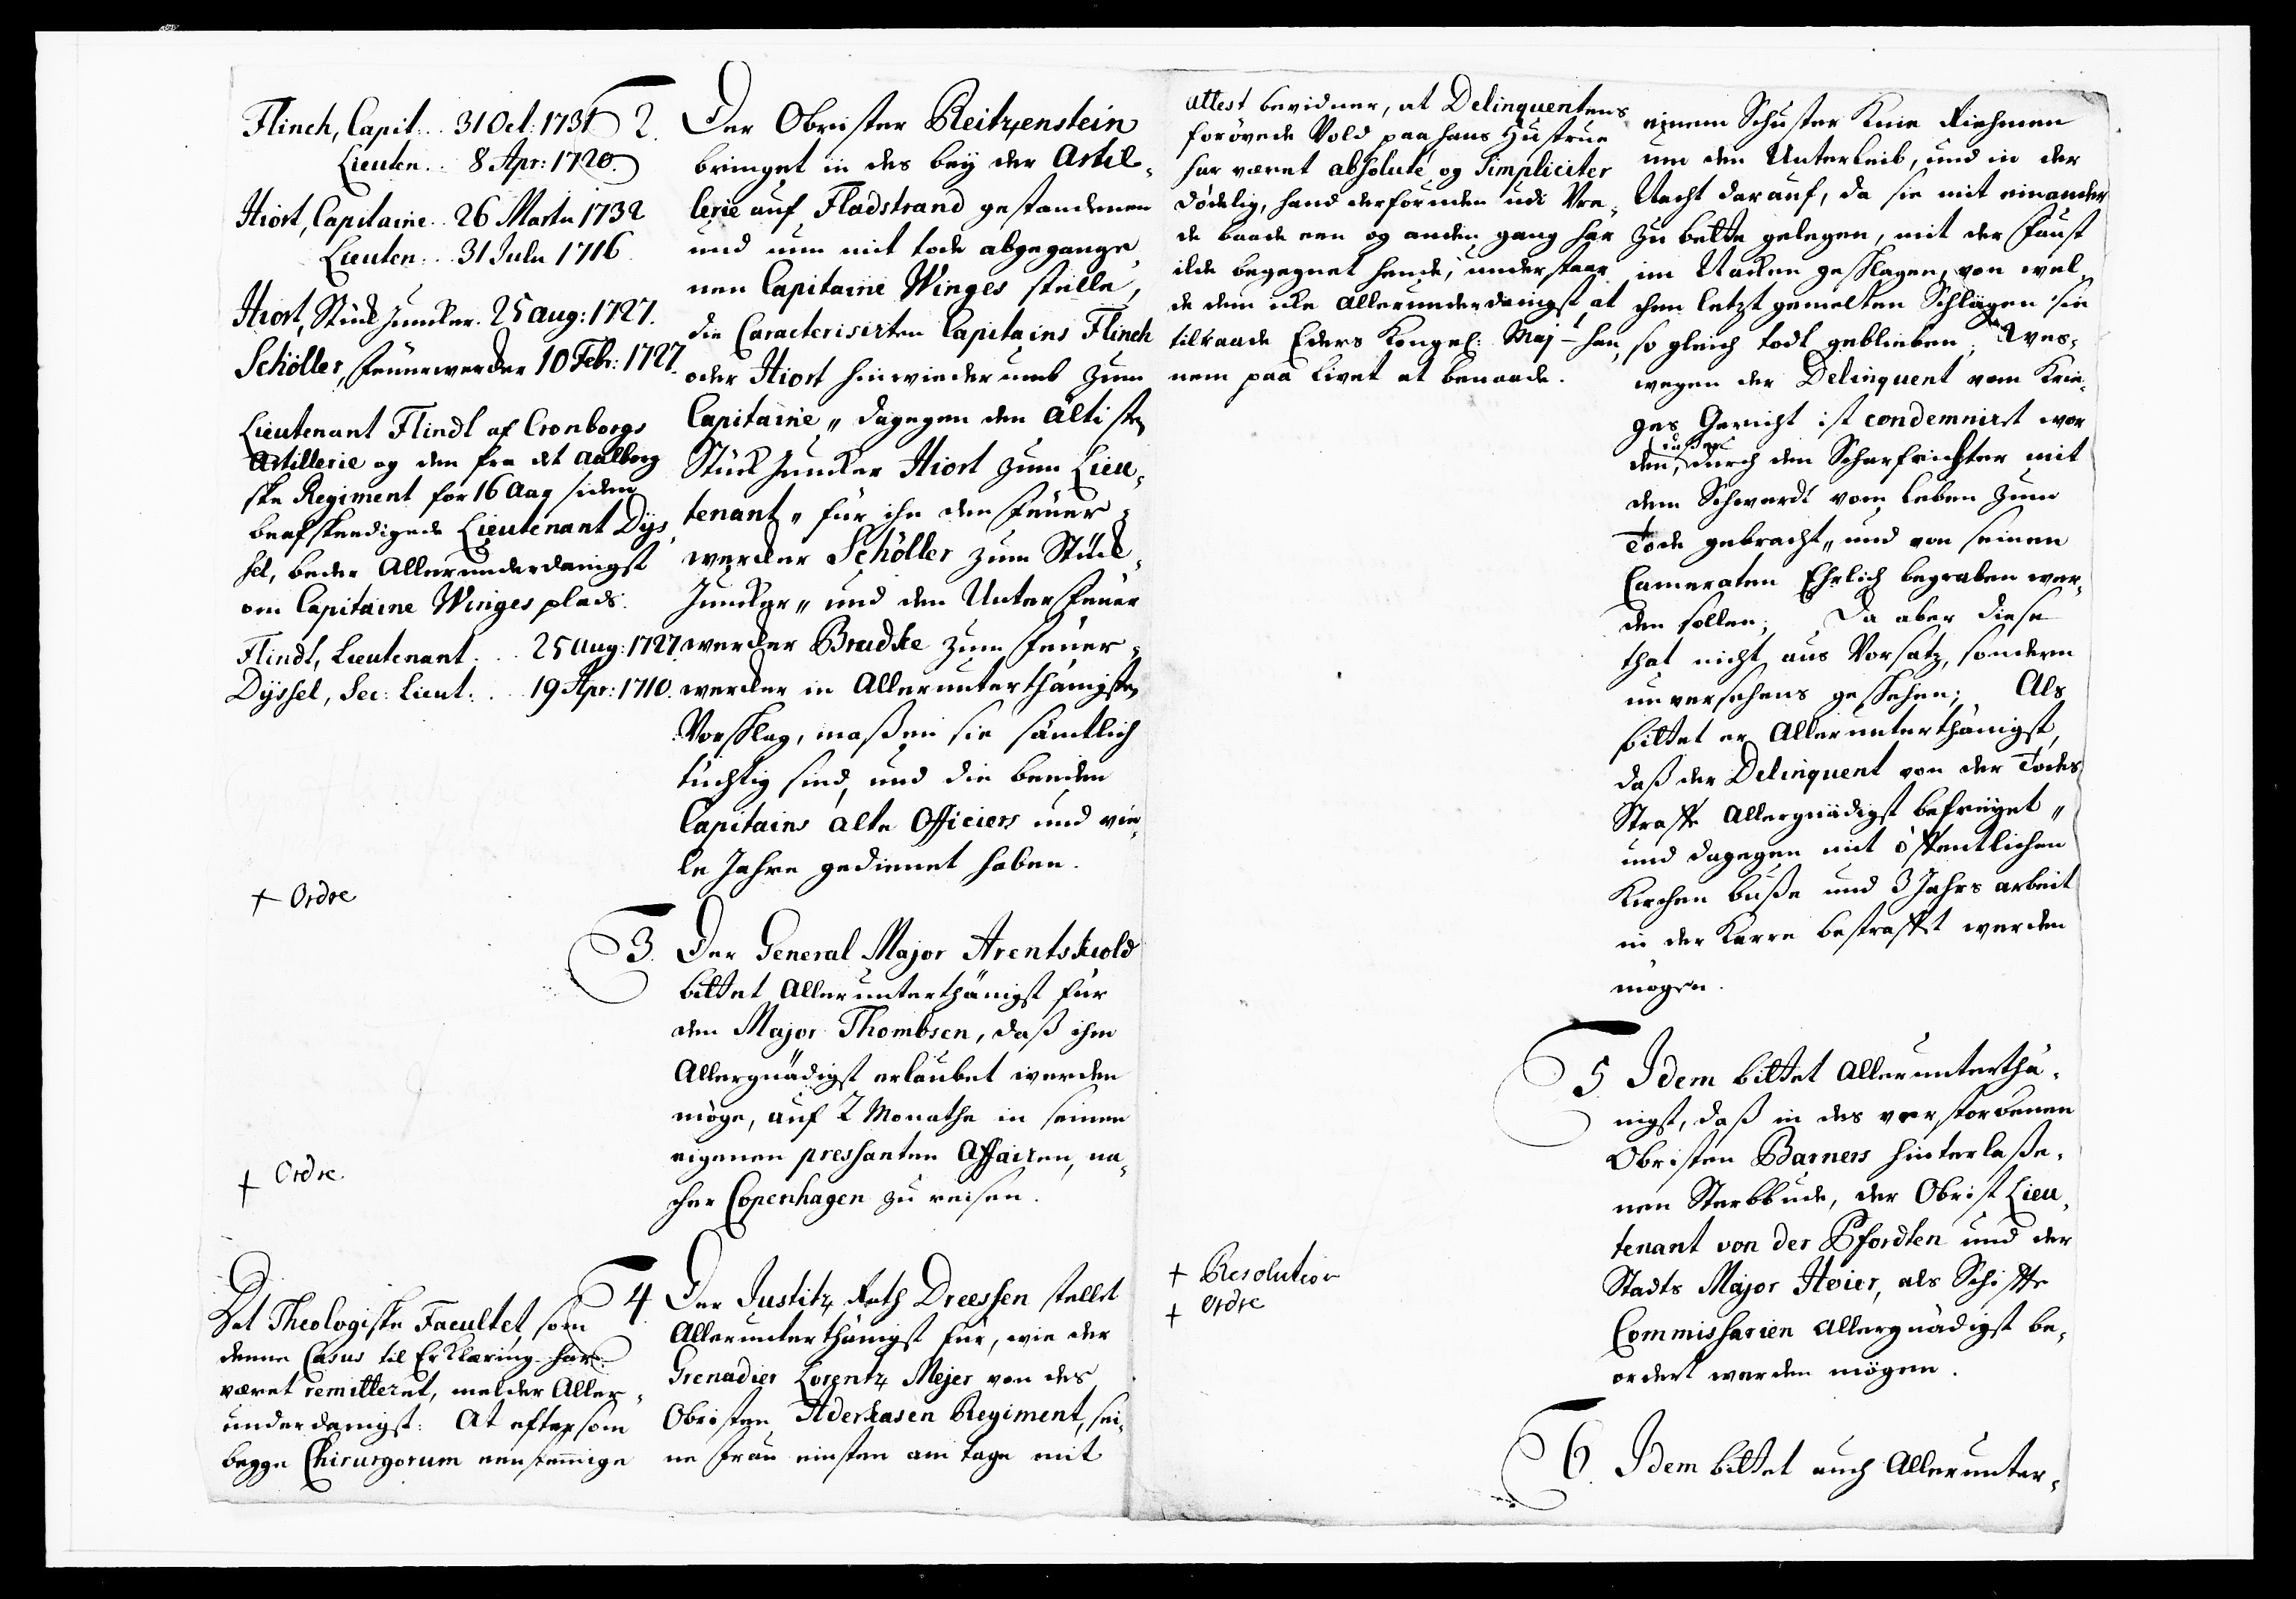 Flinch, Capit... 31 Oct: 1731
Lieuten.. 8 Apr: 1720.
Hiort, Capitaine.. 26 Martii 1732
Lieuten:.. 31 Julii 1716.
Hiort, Stück Juncker. 25 Aug: 1727.
Schöller, Feuerwercker 10 Febr: 1727.
Lieutenant Flindt af Cronborgs
Artillerie og den fra det Aalborg
ske Regiment for 16 Aar siden
beafskeedigede Lieutenant Dys,
sel, beder Allerunderdanigst
om Capitaine Winges plads.
Flindt, Lieutenant... 25 Aug: 1727.
Dÿssel, Sec: Lieut:.. 19 Apr: 1710.
+ Ordre
+ Ordre.
Det Theologiske Facultet, som
denne Casus til Erklæring har
været remitteret, melder Aller-
underdanigst: At eftersom
begge Chirurgorum eenstemmige
2. Der Obrister Reitzenstein
bringet in des beÿ der Artil-
lerie auf Fladstrand gestandenen
und nun mit tode abgegange,
nen Capitaine Winges stelle,
die Caracterisirten Capitains Flinch
oder Hiort hinwiederumb zum
Capitaine,, dagegen den älristen
Stück Juncker Hiort zum Lieu,
tenant,, für ihn den Feuer=
wercker Schöller zum Stück-
Juncker,, und den Unter Feuer
wercker Bradke zum Feuer=
wercker in Allerunterthänigsten
Vorschlag, maßen sie sämtlich
tüchtig sind, und die beeden
Capitains alte Officiers und vie,
le Jahre gedienet haben.
3. Der General Major Arentskiold
bittet Allerunterthänigst für
den Major Thombsen, daß ihm
Allergnädigst erlaubet werden
möge, auf 2 Monathe in seinen
eigenen pressanten Affairen, na,
cher Copenhagen zu reisen.
4 Der Justitz Rath Dreessen stellet
Allerunterthänigst für, wie der
Grenadier Lorentz Mejer von des
Obristen Aderkasen Regiment, sei,
ne Frau einsten am tage mit
attest bevidner, at Delinquentens
forövede Vold paa hans Hustrue
har været absolutè og simpliciter
dödelig, hand desforuden udi Vre,
de baade een og anden gang har
ilde begegnet hende, understaar
de dem icke allerunderdanigst at
tilraade Eders Kongel: Maj.t han,
nem paa Livet at benaade.
+ Resolution
+ Ordre
einem Schuster Knie Riehmen
um den Unterleib, und in der
Nacht darauf, da sie mit einander
zu bette gelegen, mit der Faust
im Nacken geschlagen, von wel,
chen letzt gemelten Schlägen sie
so gleich todt geblieben; Wes-
wegen der Delinquent vom Krie-
ges Gericht ist condemnirt wor
den, daß er durch den Scharfrichter mit
dem Schwerdt vom leben zum
Tode gebracht,, und von seinen
Cameraten Ehrlich begraben wer,
den sollen; Da aber diese
that nicht aus Vorsatz, sondern
unversehens geschehen; Als
bittet er Allerunterthänigst,
daß der Delinquent von der Todes
Straffe Allergnädigst befreÿet,,
und dagegen mit öffentlichen
Kirchen buße und 3 Jahrs arbeit
in der Karre bestraffet werden
mögen.
5. Idem bittet Allerunterthä-
nigst, daß in des verstorbenen
Obristen Barners hinterlaße,
nen Sterbbude, der Obrist Lieu,
tenant von der Pfordten und der
Stadts Major Höier, als Schiffte
Commissarien Allergnädigst be,
ordert werden mögen.
6. Idem bittet auch Allerunter-